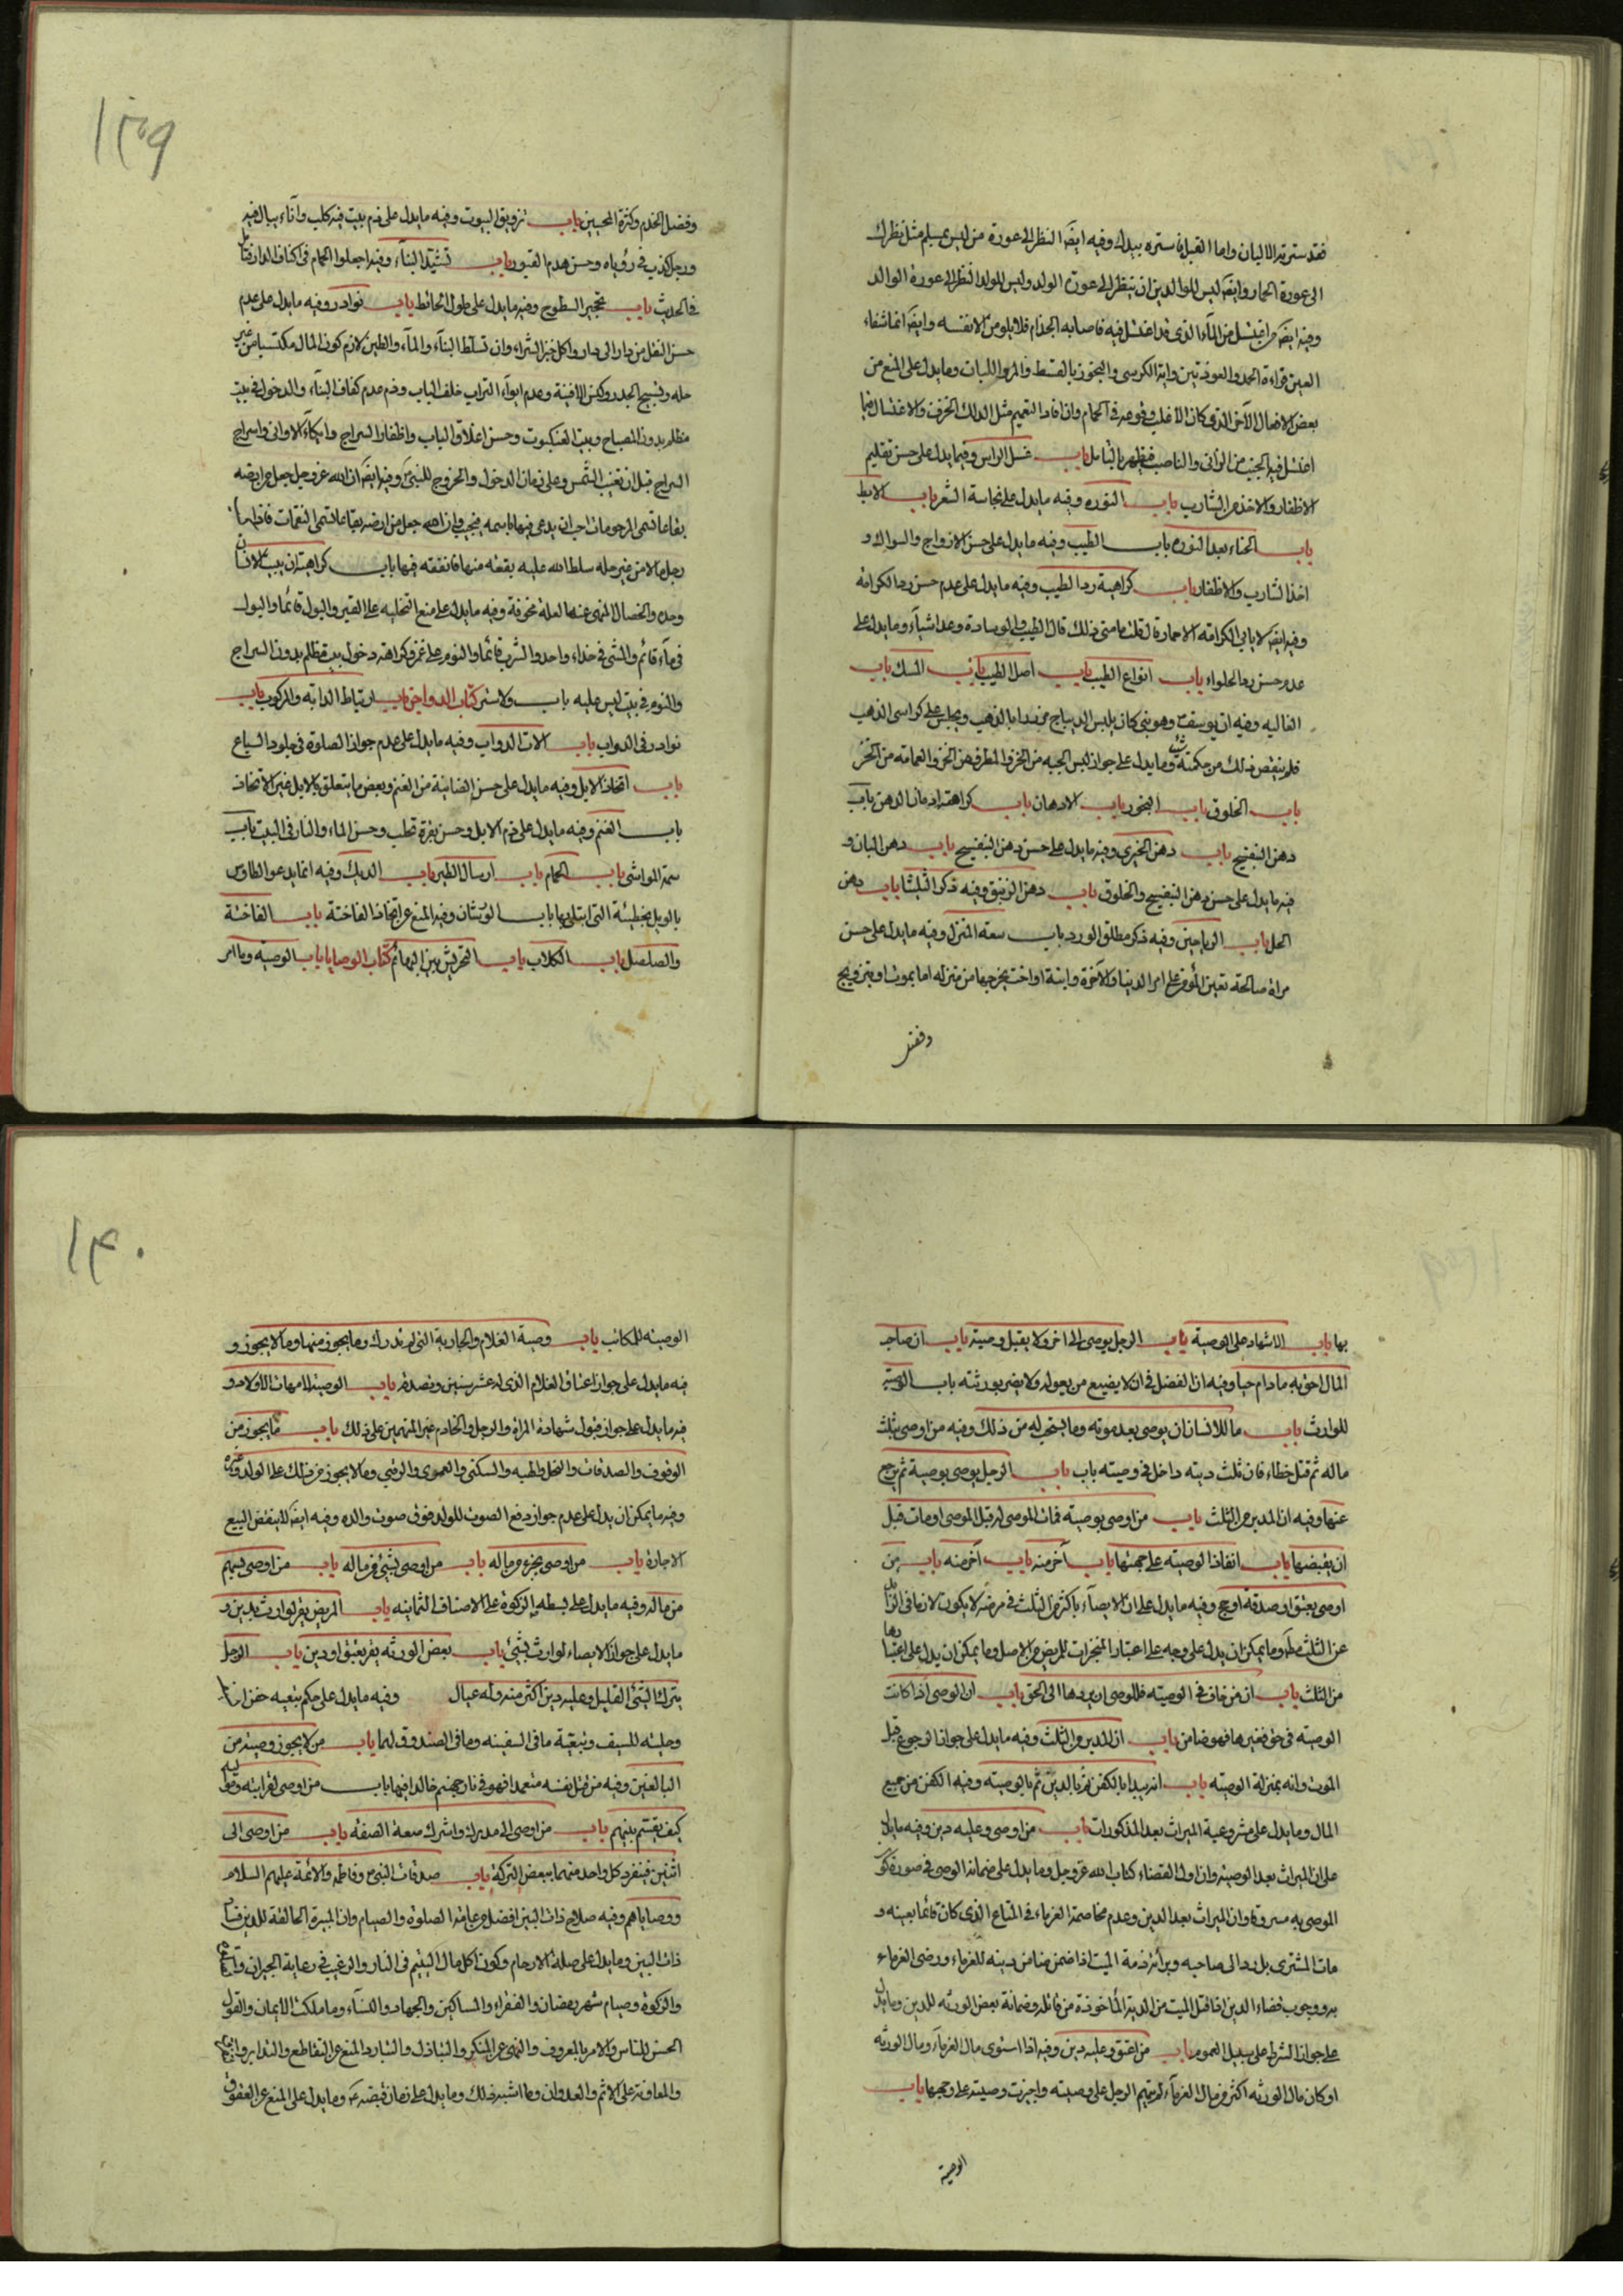 فقد سترته الاليان واما القبل فاستره بيدك وفيه ايضَ النظر الى عورة من ليس بمسلم مثل نظرك
الى عورة الحمار وايضَ ليس للوالدين ان ينظر الى عورة الولد وليس للولد النظر الى عورة الوالد
وفيه ايضَ من اغتسل من المآء الذى قد اغتسل فيه فاصابه الجذام فلا يلومن الا نفسه وايضَ انما شفاء
العين قراءة الحمد والمعوذتين واية الكرسى والبخور بالقسط والمر واللبان وما يدل على المنع من
بعض الافعال الآخر الذى كان الاغلب وقوعه فى الحمام وان افاد التعميم مثل الدلك بالخزف والاغتسال فيما
اغتسل فيه الجنب من الزانى والناصب فيظهر بالتامل باب غسل الراس وفيما يدل على حسن تقليم
الاظفار والاخذ من الشارب باب النوره وفيه ما يدل على نجاسة الشعر باب الابط
باب الحناء بعد النوره باب الطيب وفيه ما يدل على حسن الازواج والسواك و
اخذ الشارب والاظفار باب كراهية رد الطيب وفيه ما يدل على عدم حسن رد الكرامة
وفيه ايضَ لا يابى الكرامة الا حمار قال قلت ما معنى ذلك قال الطيب والوسادة وعد اشيآء وما يدل على
عدم حسن رد الحلواء باب انواع الطيب باب اصل الطيب باب المسك باب
الغاليه وفيه ان يوسف وهو نبى كان يلبس الديباج مزردا بالذهب ويجلس على كراسى الذهب
فلم ينقص ذلك من حكمته شئ وما يدل على جواز لبس الجبه من الخز والمطرف من الخز والعمامه من الخز
باب الخلوق باب البخور باب الادهان باب كراهية ادمان الدهن باب
دهن البنفسج باب دهن الخيرى وفيه ما يدل على حسن دهن البنفسج باب دهن البان و
فيه ما يدل على حسن دهن البنفسج والخلوق باب دهن الزنبق وفيه ذكر الثلثا باب دهن
الحل باب الرياحين وفيه ذكر مطلق الورد باب سعة المنزل وفيه ما يدل على حسن
مراة صالحة تعين المؤمن على امر الدنيا والآخرة وابنة او اخت يخرجها من منزله اما بموت او بتزويج
وفضل
١٣٩
وفضل الخدم وكثرة المحبين باب تزويق البيوت وفيه ما يدل على ذم بيت فيه كلب وآناء يبال فيه
ورجل كذب فى رؤياه وحسن هدم القبور باب تشييد البنآء وفيه اجعلوا الحمام فى اكناف الدار
فى الحديث باب تحجير السطوح وفيه ما يدل على طول الحائط باب نوادر وفيه ما يدل على عدم
حسن النقل من دار الى دار واكل خبز الشراء وان تسلط البنآء والمآء والطين لازم كون المال مكتسبا من غير
حله وتسبيح الجدر وكنس الافنية وعدم ايوآء التراب خلف الباب وذم عدم كفاف البنآء والدخول فى بيت
مظلم بدون المصباح وبيت العنكبوت وحسن اغلاق الباب واطفاء السراج وايكآء الاوانى واسراج
السراج قبل ان تغيب الشمس وعلى زمان الدخول والخروج للنبى وفيه ايضَ ان الله عز وجل جعل من ارضه
بقاعا تسمى المرحومات احب ان يدعى فيها باسمه فيجيب وان الله جعل من ارضه بقاعا تسمى المنتقمات فاذا
رجل مالا من غير حله سلط الله عليه بقعة منها فانفقه فيها باب كراهية ان يبيت الانسان
وحده والخصال المنهى عنها لعلة مخوفة وفيه ما يدل على منع التخليه على القبر والبول قائما والبول
فى مآء قائم والمشى فى حذاء واحد والشرب قائما والنوم على غمر وكراهة دخول بيت مظلم بدون السراج
والنوم فى بيت ليس عليه باب ولا ستر كتاب الدواجن باب ارتباط الدابه والمركوب باب
نوادر فى الدواب باب الات الدواب وفيه ما يدل على عدم جواز الصلوة فى جلود السباع
باب اتخاذ الابل وفيه ما يدل على حسن الضانية من الغنم وبعض ما يتعلق بالابل غير الاتخاذ
باب الغنم وفيه ما يدل على ذم الابل وحسن بقرة تحلب وحسن الماء والنار فى البيت باب
سمة المواشى باب الحمام باب ارسال الطير باب الديك وفيه انما يدعو الطاوس
بالويل بخطيئة التى ابتلى بها باب الورشان وفيه المنع عن اتخاذ الفاختة باب الفاختة
والصلصل باب الكلاب باب التحريش بين البهائم كتاب الوصايا باب الوصية وما امر
بها باب الاشهاد على الوصية باب الرجل يوصى الى اخر ولا يقبل وصيته باب ان صاحب
المال احق به ما دام حيا وفيه ان الفضل فى ان لا يضيع من يعوله ولا يضر بورثته باب الوصية
للوارث باب ما للانسان ان يوصى بعد موته وما يستحب له من ذلك وفيه من اوصى بثلث
ماله ثم قتل خطاء فان ثلث ديته داخل فى وصيته باب باب الرجل يوصى بوصية ثم يرجع
عنها وفيه ان المدبر من الثلث باب من اوصى بوصيته فمات الموصى له قبل الموصى او مات قبل
ان يقبضها باب انفاذ الوصيته على جهتها باب آخر منه باب آخر منه باب من
اوصى بعتق او صدقة او حج وفيه ما يدل على ان الايصآء باكثر من الثلث فى مرضه لا يكون لازما فى
عن الثلث وما يمكن ان يدل على وجه على اعتبار المنجزات للمريض من الاصل وما يمكن ان يدل على اعتبارها
من الثلث باب ان من خاف فى الوصيته فللوصى ان يردها الى الحق باب ان الوصى اذا كانت
الوصيته فى حق فغيرها فهو ضامن باب ان المدبر من الثلث وفيه ما يدل على جواز الرجوع قبل
الموت وانه بمنزلة الوصيته باب انه يبدا بالكفن ثم بالدين ثم بالوصيته وفيه الكفن من جميع
المال وما يدل على مشروعية الميراث بعد المذكورات باب من اوصى وعليه دين وفيه ما يدل
على ان الميراث بعد الوصيته وان اولى القضاء كتاب الله عز وجل وما يدل على ضمانة الوصى فى صورة
الموصى به مسروقا وان الميراث بعد الدين وعدم مخاصمة الغرماء فى المتاع الذى كان قائما بعينه و
مات المشترى بل رد الى صاحبه وبرائة ذمة الميت اذا ضمن ضامن دينه للغرماء ورضى الغرماء
به ووجوب قضاء الدين اذا قتل الميت من الدية المأخوذة من قاتله وضمانة بعض الورثه للدين وما يدل
على جواز الشرط على سبيل العموم باب من اعتق وعليه دين وفيه اذا استوى مال الغرمآء ومال الورثه
او كان مال الورثه اكثر من مال الغرمآء لم يتهم الرجل على وصيته واجيزت وصيته على وجهها باب
الوصية
١٤٠
الوصيته للمكاتب باب وصية الغلام والجارية التى لم تدرك وما يجوز منها وما لا يجوز و
فيه ما يدل على جواز اعتاق الغلام الذى له عشر سنين وتصدقه باب الوصيته لامهات الاولاد و
فيه ما يدل على جواز قبول شهادة المراة والرجل والخادم غير المتهمين على ذلك باب ما يجوز من
الوقوف والصدقات والنحل والهبه والسكنى والعمرى والرقبى وما لا يجوز من ذلك على الولد وغيره
وفيه ما يمكن ان يدل على عدم جواز رفع الصوت للولد فوق صوت والده وفيه ايضَ لا ينقض البيع
الاجارة باب من اوصى بجزء من ماله باب من اوصى بشئ من ماله باب من اوصى بسهم
من ماله وفيه ما يدل على بسطه الزكوة على الاصناف الثمانيه باب المريض يقر لوارث بدين و
ما يدل على جواز الايصاء لوارث بشئ باب بعض الورثه يقر بعتق او دين باب الرجل
يترك الشئ القليل وعليه دين اكثر منه وله عيال وفيه ما يدل على حكم تبعيه جفن
وحليته للسيف وتبعية ما فى السفينه وما فى الصندوق لهما باب من لا يجوز وصيته من
البالغين وفيه من قتل نفسه متعمدا فهو فى نار جهنم خالدا فيها باب من اوصى لقرابته ومواليه
كيف يقسم بينهم باب من اوصى الى مدرك واشرك معه الصغير باب من اوصى الى
اثنين فينفرد كل واحد منهما ببعض التركة باب صدقات النبى وفاطمه والائمة عليهم السلام
ووصاياهم وفيه صلاح ذات البين افضل من عامة الصلوة والصيام وان المبيرة الحالقة للدين فساد
ذات البين وما يدل على صلة الارحام وكون اكل مال اليتيم فى النار والترغيب فى رعاية الجيران
والزكوة وصيام شهر رمضان والفقراء والمساكين والجهاد والنسآء وما ملكت الايمان والقول
الحسن للناس والامر بالمعروف والنهى عن المنكر والتباذل والتبار والمنع عن التقاطع والتدابر
والمعاونة على الاثم والعدوان وما اشبه ذلك وما يدل على زمان قبضه وما يدل على المنع عن العقوق